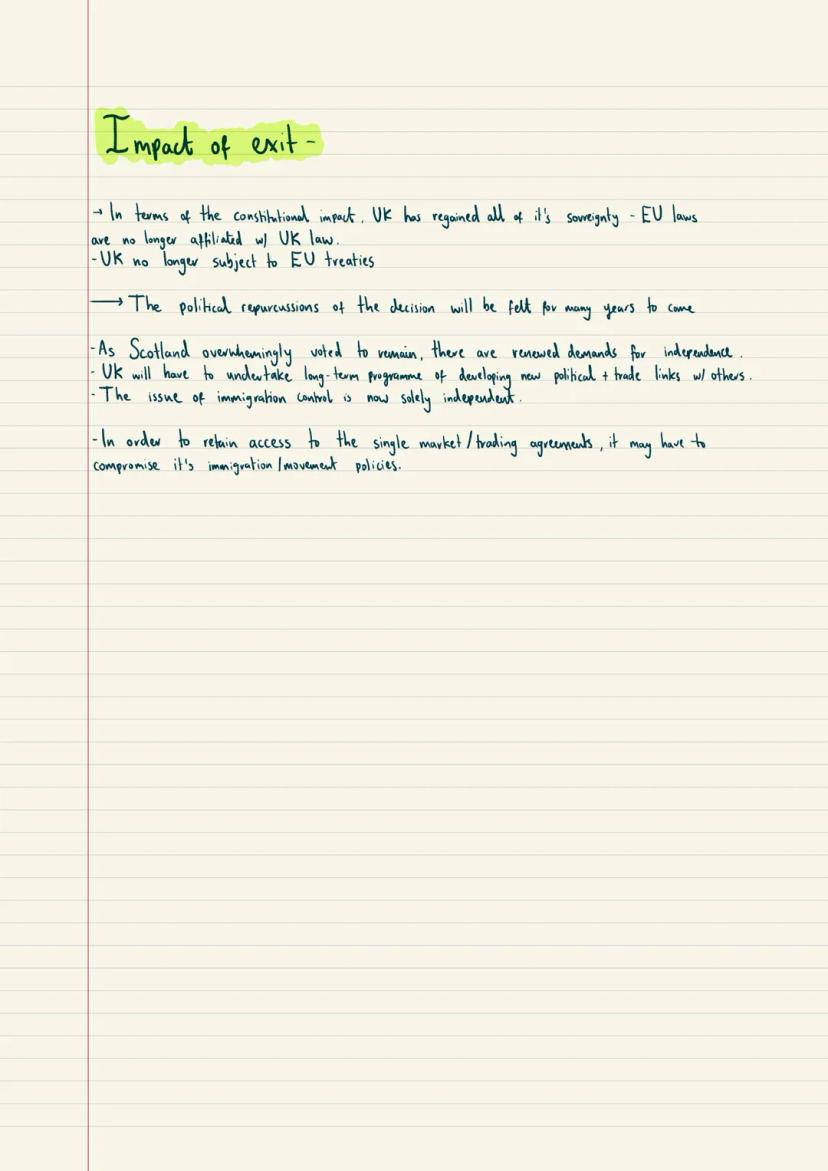 Impact of exit -
→ In terms of the constitutional impact, UK has regained all of it's sovreignty - EU laws
are no longer affiliated w/ UK law.
- UK no longer subject to EU treaties
→ The political repurcussions of the decision will be felt for many years to come
- As Scotland overwhemingly voted to remain, there are renewed demands for independence.
- UK will have to undertake long-term programme of developing new political + trade links w/ others.
- The issue of immigration control is now solely independent.
- In order to retain access to the single market / trading agreements, it may have to
compromise it's immigration / movement policies.